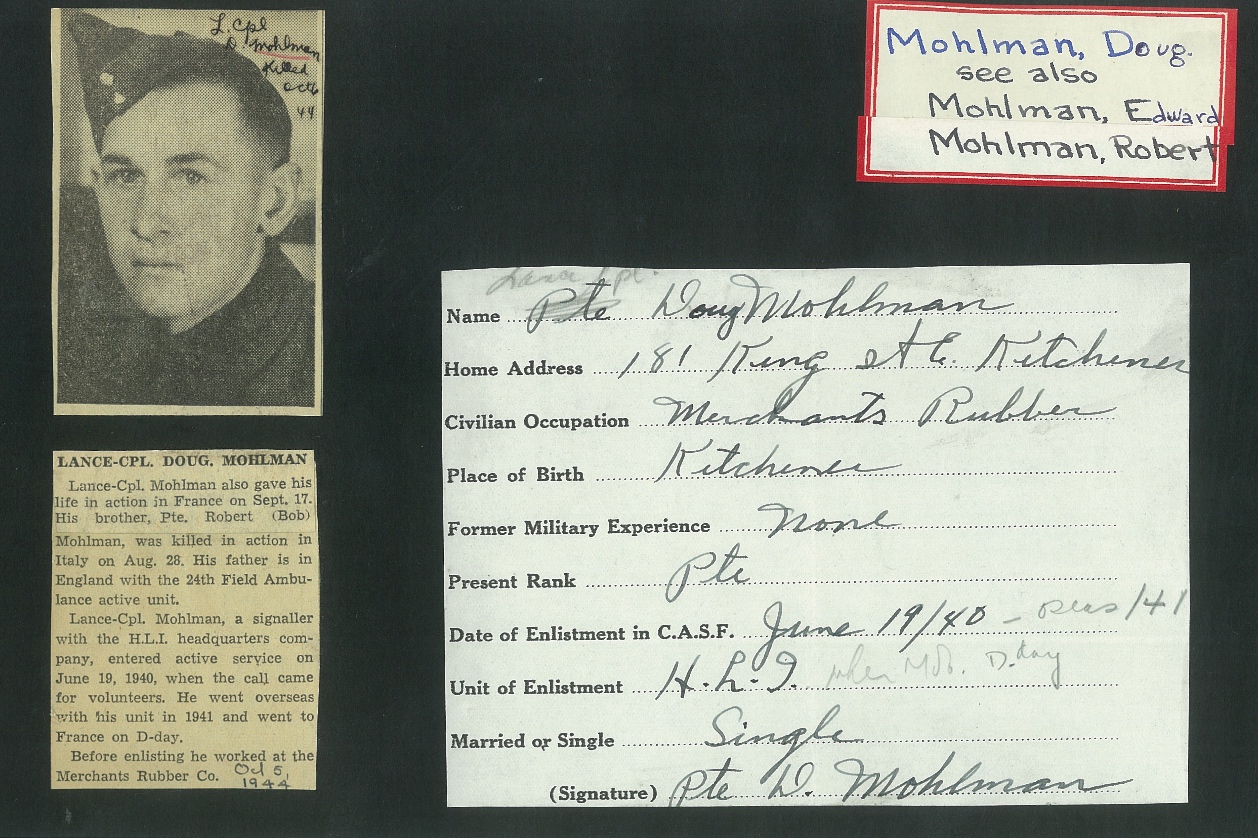 L. Cpl
D Mohlman
Killed
Oct 6
44
LANCE-CPL. DOUG. MOHLMAN
Lance-Cpl. Mohlman also gave his
life in action in France on Sept. 17.
His brother, Pte. Robert (Bob)
Mohlman, was killed in action in
Italy on Aug. 28. His father is in
England with the 24th Field Ambu-
lance active unit.
Lance-Cpl. Mohlman, a signaller
with the H.L.I. headquarters com-
pany, entered active service on
June 19, 1940, when the call came
for volunteers. He went overseas
with his unit in 1941 and went to
France on D-day.
Before enlisting he worked at the
Merchants Rubber Co. Oct 5,
1944
Mohlman, Doug.
see also
Mohlman, Edward
Mohlman, Robert
Lance Cpl.
Name Pte Doug Mohlman
Home Address 181 King St E. Kitchener
Civilian Occupation Merchants Rubber
Place of Birth Kitchener
Former Military Experience None
Present Rank Pte
Date of Enlistment in C.A.S.F. June 19/40 - oseas/41
Unit of Enlistment H.L.I. D.day
Married or Single Single
(Signature) Pte D. Mohlman